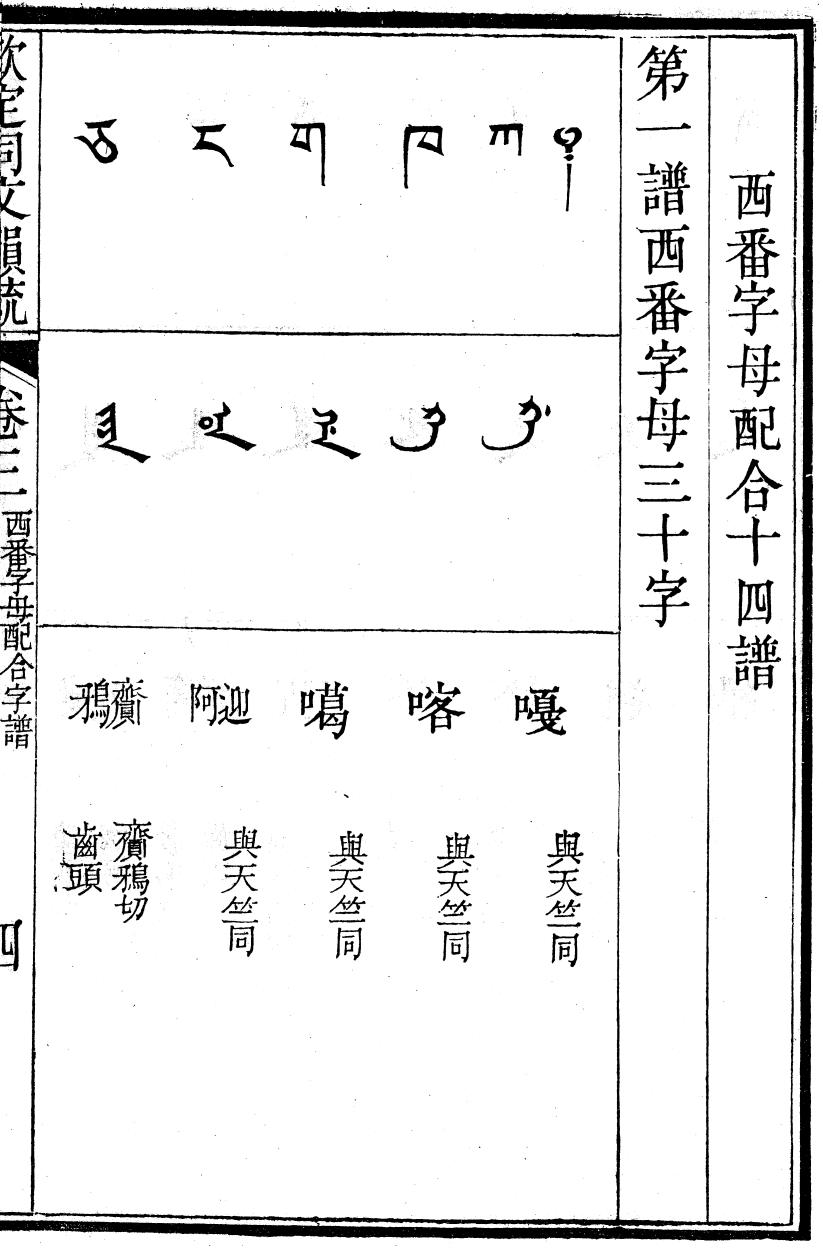 西番字母配合十四譜
第一譜西番字母三十字
༈ ཀ
嘎
與天竺同
ཁ
喀
與天竺同
ག
噶
與天竺同
ང
迎阿
與天竺同
ཅ
齎鴉
齎鴉切
齒頭
欽定同文韻統
卷三
西番字母配合字譜
四